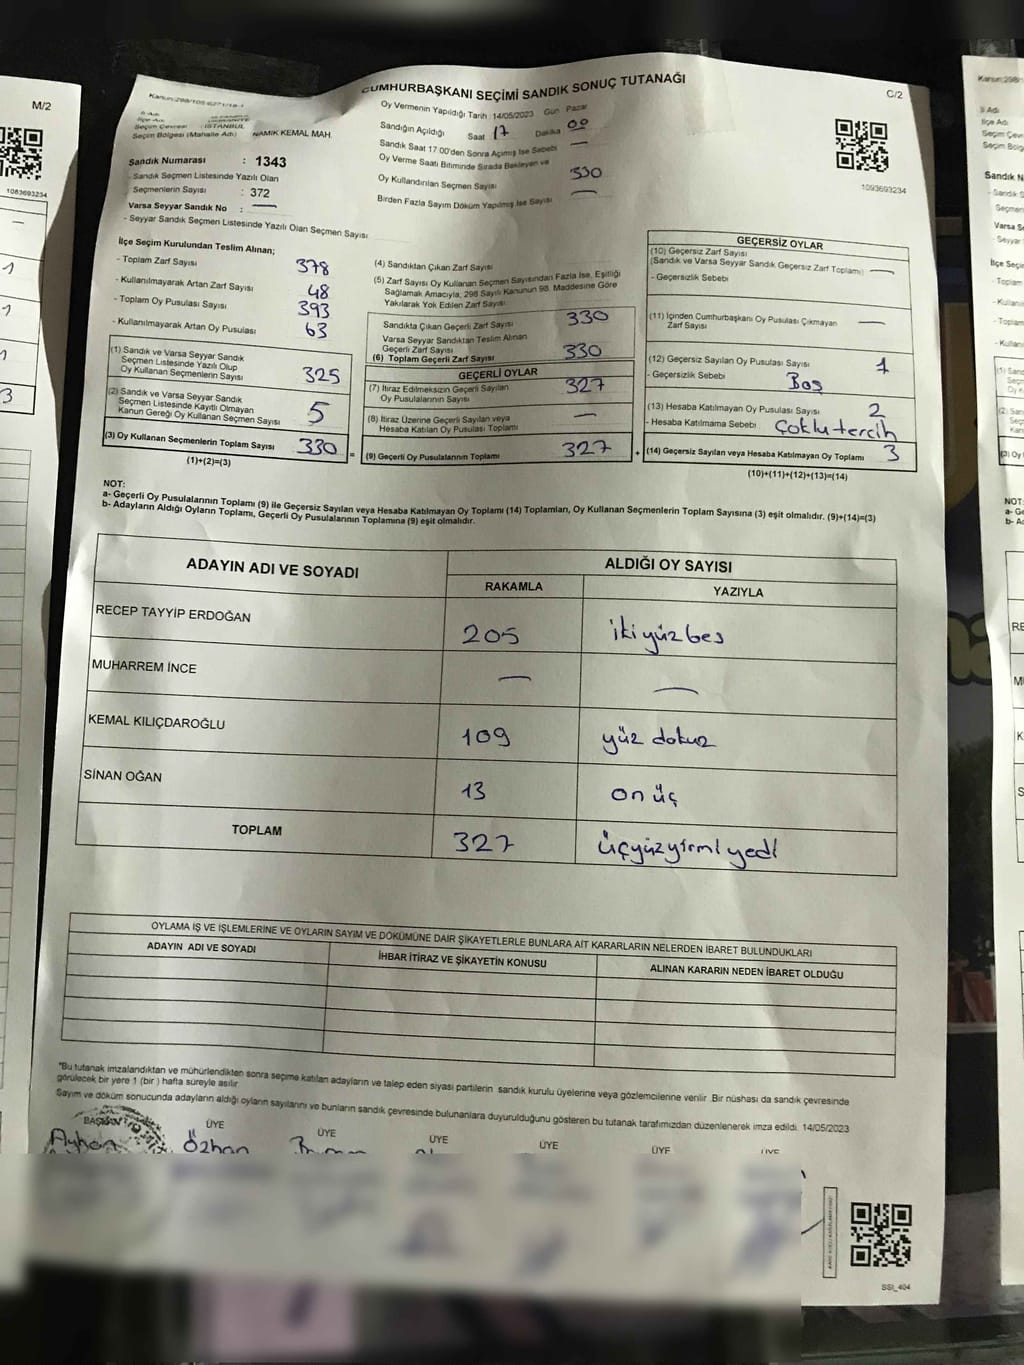 M/2
1083693234
CUMHURBAŞKANI SEÇİMİ SANDIK SONUÇ TUTANAĞI
C/2
İl Adı
İlçe Adı
Seçim Çevresi : İSTANBUL
Seçim Bölgesi (Mahalle Adı) NAMIK KEMAL MAH.
Sandık Numarası : 1343
- Sandık Seçmen Listesinde Yazılı Olan
Seçmenlerin Sayısı : 372
Varsa Seyyar Sandık No : —
- Seyyar Sandık Seçmen Listesinde Yazılı Olan Seçmen Sayısı
Oy Vermenin Yapıldığı Tarih 14/05/2023 Gün Pazar
Sandığın Açıldığı Saat 17 Dakika 00
Sandık Saat 17.00'den Sonra Açımış İse Sebebi —
Oy Verme Saati Bitiminde Sırada Bekleyen ve
Oy Kullandırılan Seçmen Sayısı 330
Birden Fazla Sayım Döküm Yapılmış İse Sayısı —
1093693234
İlçe Seçim Kurulundan Teslim Alınan;
- Toplam Zarf Sayısı 378
- Kullanılmayarak Artan Zarf Sayısı 48
- Toplam Oy Pusulası Sayısı 393
- Kullanılmayarak Artan Oy Pusulası 63
(1) Sandık ve Varsa Seyyar Sandık
Seçmen Listesinde Yazılı Olup
Oy Kullanan Seçmenlerin Sayısı 325
(2) Sandık ve Varsa Seyyar Sandık
Seçmen Listesinde Kayıtlı Olmayan
Kanun Gereği Oy Kullanan Seçmen Sayısı 5
(3) Oy Kullanan Seçmenlerin Toplam Sayısı 330 =
(1)+(2)=(3)
(4) Sandıktan Çıkan Zarf Sayısı
(5) Zarf Sayısı Oy Kullanan Seçmen Sayısından Fazla İse, Eşitliği
Sağlamak Amacıyla, 298 Sayılı Kanunun 98. Maddesine Göre
Yakılarak Yok Edilen Zarf Sayısı
Sandıkta Çıkan Geçerli Zarf Sayısı 330
Varsa Seyyar Sandıktan Teslim Alınan
Geçerli Zarf Sayısı
(6) Toplam Geçerli Zarf Sayısı 330
GEÇERLİ OYLAR
(7) İtiraz Edilmeksizin Geçerli Sayılan
Oy Pusulalarının Sayısı 327
(8) İtiraz Üzerine Geçerli Sayılan veya
Hesaba Katılan Oy Pusulası Toplamı —
(9) Geçerli Oy Pusulalarının Toplamı 327 +
GEÇERSİZ OYLAR
(10) Geçersiz Zarf Sayısı
(Sandık ve Varsa Seyyar Sandık Geçersiz Zarf Toplamı) —
- Geçersizlik Sebebi
(11) İçinden Cumhurbaşkanı Oy Pusulası Çıkmayan
Zarf Sayısı —
(12) Geçersiz Sayılan Oy Pusulası Sayısı 1
- Geçersizlik Sebebi Boş
(13) Hesaba Katılmayan Oy Pusulası Sayısı 2
- Hesaba Katılmama Sebebi Çoklu tercih
(14) Geçersiz Sayılan veya Hesaba Katılmayan Oy Toplamı 3
(10)+(11)+(12)+(13)=(14)
NOT:
a- Geçerli Oy Pusulalarının Toplamı (9) ile Geçersiz Sayılan veya Hesaba Katılmayan Oy Toplamı (14) Toplamları, Oy Kullanan Seçmenlerin Toplam Sayısına (3) eşit olmalıdır. (9)+(14)=(3)
b- Adayların Aldığı Oyların Toplamı, Geçerli Oy Pusulalarının Toplamına (9) eşit olmalıdır.
ADAYIN ADI VE SOYADI
ALDIĞI OY SAYISI
RAKAMLA YAZIYLA
RECEP TAYYİP ERDOĞAN 205 iki yüz beş
MUHARREM İNCE — —
KEMAL KILIÇDAROĞLU 109 yüz dokuz
SİNAN OĞAN 13 on üç
TOPLAM 327 üçyüzyirmi yedi
OYLAMA İŞ VE İŞLEMLERİNE VE OYLARIN SAYIM VE DÖKÜMÜNE DAİR ŞİKAYETLERLE BUNLARA AİT KARARLARIN NELERDEN İBARET BULUNDUKLARI
ADAYIN ADI VE SOYADI İHBAR İTİRAZ VE ŞİKAYETİN KONUSU ALINAN KARARIN NEDEN İBARET OLDUĞU
*Bu tutanak imzalandıktan ve mühürlendikten sonra seçime katılan adayların ve talep eden siyasi partilerin sandık kurulu üyelerine veya gözlemcilerine verilir. Bir nüshası da sandık çevresinde
görülecek bir yere 1 (bir) hafta süreyle asılır.
Sayım ve döküm sonucunda adayların aldığı oyların sayılarını ve bunların sandık çevresinde bulunanlara duyurulduğunu gösteren bu tutanak tarafımızdan düzenlenerek imza edildi. 14/05/2023
BAŞKAN ÜYE ÜYE ÜYE ÜYE ÜYE ÜYE
Ayhan Özhan
SSI_404